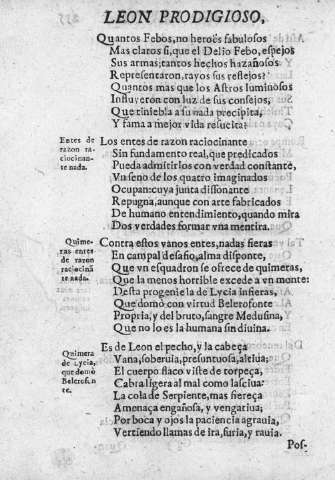 LEON PRODIGIOSO,
Quantos Febos, no heroès fabulosos
Mas claros si, que el Delio Febo, espejos
Sus armas; tantos hechos hazañosos
Representaron, rayos sus reflejos?
Quantos mas que los Astros luminosos
Influyeron con luz de sus consejos,
Que tiniebla a su nada precipita,
Y fama a mejor vida resucita?
Entes de
razon ra-
ciocinan-
te nada.
Los entes de razon raciocinante
Sin fundamento real, que predicados
Pueda admitir los con verdad constante,
Vn seno de los quatro imaginados
Ocupan: cuya junta dissonante
Repugna, aunque con arte fabricados
De humano entendimiento, quando mira
Dos verdades formar vna mentira.
Quime-
ras entes
de razon
raciociná
te nada.
Contra estos vanos entes, nadas fieras
En campal desafio, alma disponte,
Que vn esquadron se ofrece de quimeras,
Que la menos horrible excede a vn monte:
Desta progenie la de Lycia infieras,
Que domò con virtud Belerofonte
Propria, y del bruto, sangre Medusina,
Que no lo es la humana sin diuina.
Quimera
de Lycia,
que domò
Belerofon
te.
Es de Leon el pecho, y la cabeça
Vana, soberuia, presuntuosa, altiua;
El cuerpo flaco viste de torpeça,
Cabra ligera al mal como lasciua:
La cola de Serpiente, mas fiereça
Amenaça engañosa, y vengatiua;
Por boca y ojos la paciencia agrauia,
Vertiendo llamas de ira, furia, y rauia.
Pos-